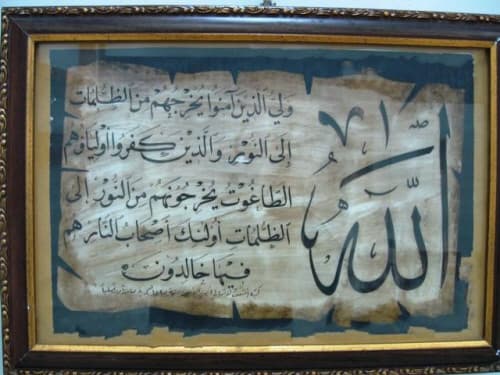 الله
ولي الذين آمنوا يخرجهم من الظلمات
إلى النور والذين كفروا أولياؤهم
الطاغوت يخرجونهم من النور إلى
الظلمات أولئك أصحاب النار هم
فيها خالدون